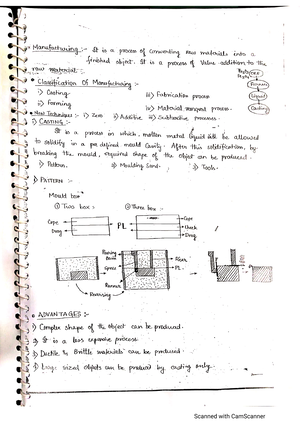 Manufacturing :- It is a process of converting raw materials into a
finished object. It is a process of Value addition to the
raw material.
• Classification Of Manufacturing :-
i) Casting
iii) Fabrication process
ii) Forming
iv) Material removal process.
Powder
Liquid
Casting
• New Techniques :- 1) Zero 2) Additive 3) Subtractive processes.
1) CASTING :-
It is a process in which, molten metal liquid will be allowed
to solidify in a pre defined mould Cavity. After this solidification, by
breaking the mould, required shape of the object can be produced.
1) Pattern. 2) Moulding Sand. 3) Tools.
1) PATTERN :-
Mould box
① Two box :-
② Three box :-
Cope
Drag
PL
Cope
Cheek
Drag
Pouring
basin
Sprue
Runner
Riser
PL.
Reversing
• ADVANTAGES :-
1) Complex shape of the object can be produced.
2) It is a less expensive process
3) Ductile & Brittle materials can be produced.
4) Large sized objects can be produced by casting only.
Scanned with CamScanner